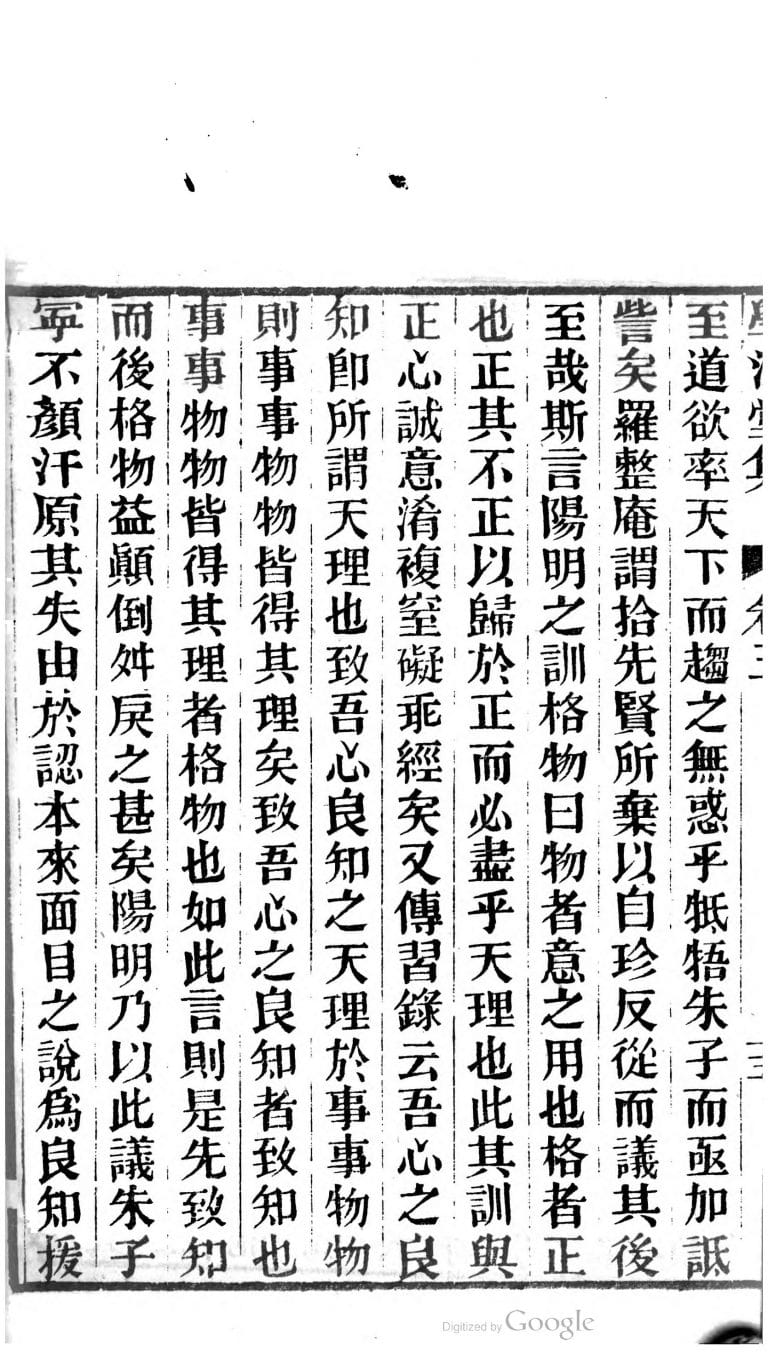 至道欲率天下而趨之無惑乎牴牾朱子而亟加詆
訾矣羅整庵謂拾先賢所棄以自珍反從而議其後
至哉斯言陽明之訓格物曰物者意之用也格者正
也正其不正以歸於正而必盡乎天理也此其訓與
正心誠意淆複窒礙乖經矣又傳習錄云吾心之良
知卽所謂天理也致吾心良知之天理於事事物物
則事事物物皆得其理矣致吾心之良知者致知也
事事物物皆得其理者格物也如此言則是先致知
而後格物益顚倒舛戾之甚矣陽明乃以此議朱子
寜不顏汗原其失由於認本來面目之說爲良知援
Digitized by Google